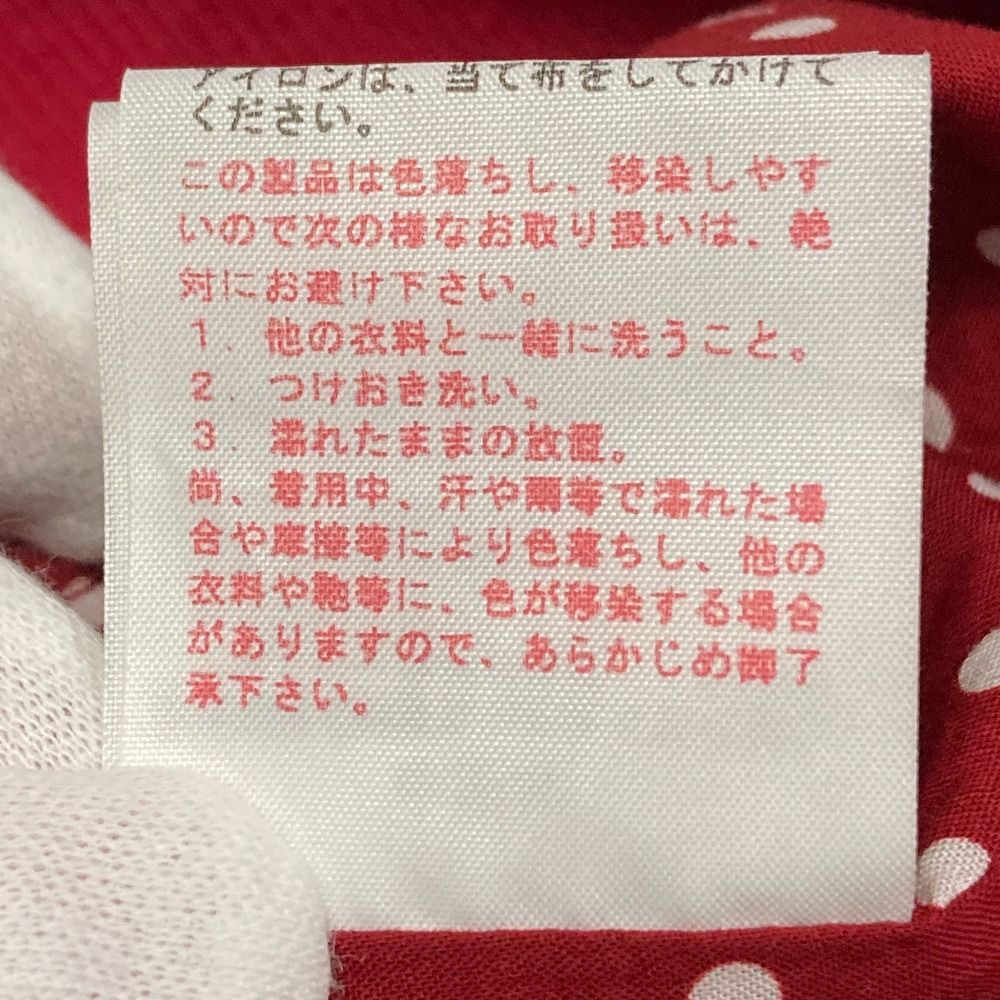 アイロンは、当て布をしてかけて
ください。
この製品は色落ちし、移染しやす
いので次の様なお取り扱いは、絶
対にお避け下さい。
1. 他の衣料と一緒に洗うこと。
2. つけおき洗い。
3. 濡れたままの放置。
尚、着用中、汗や雨等で濡れた場
合や摩擦等により色落ちし、他の
衣料や鞄等に、色が移染する場合
がありますので、あらかじめ御了
承下さい。